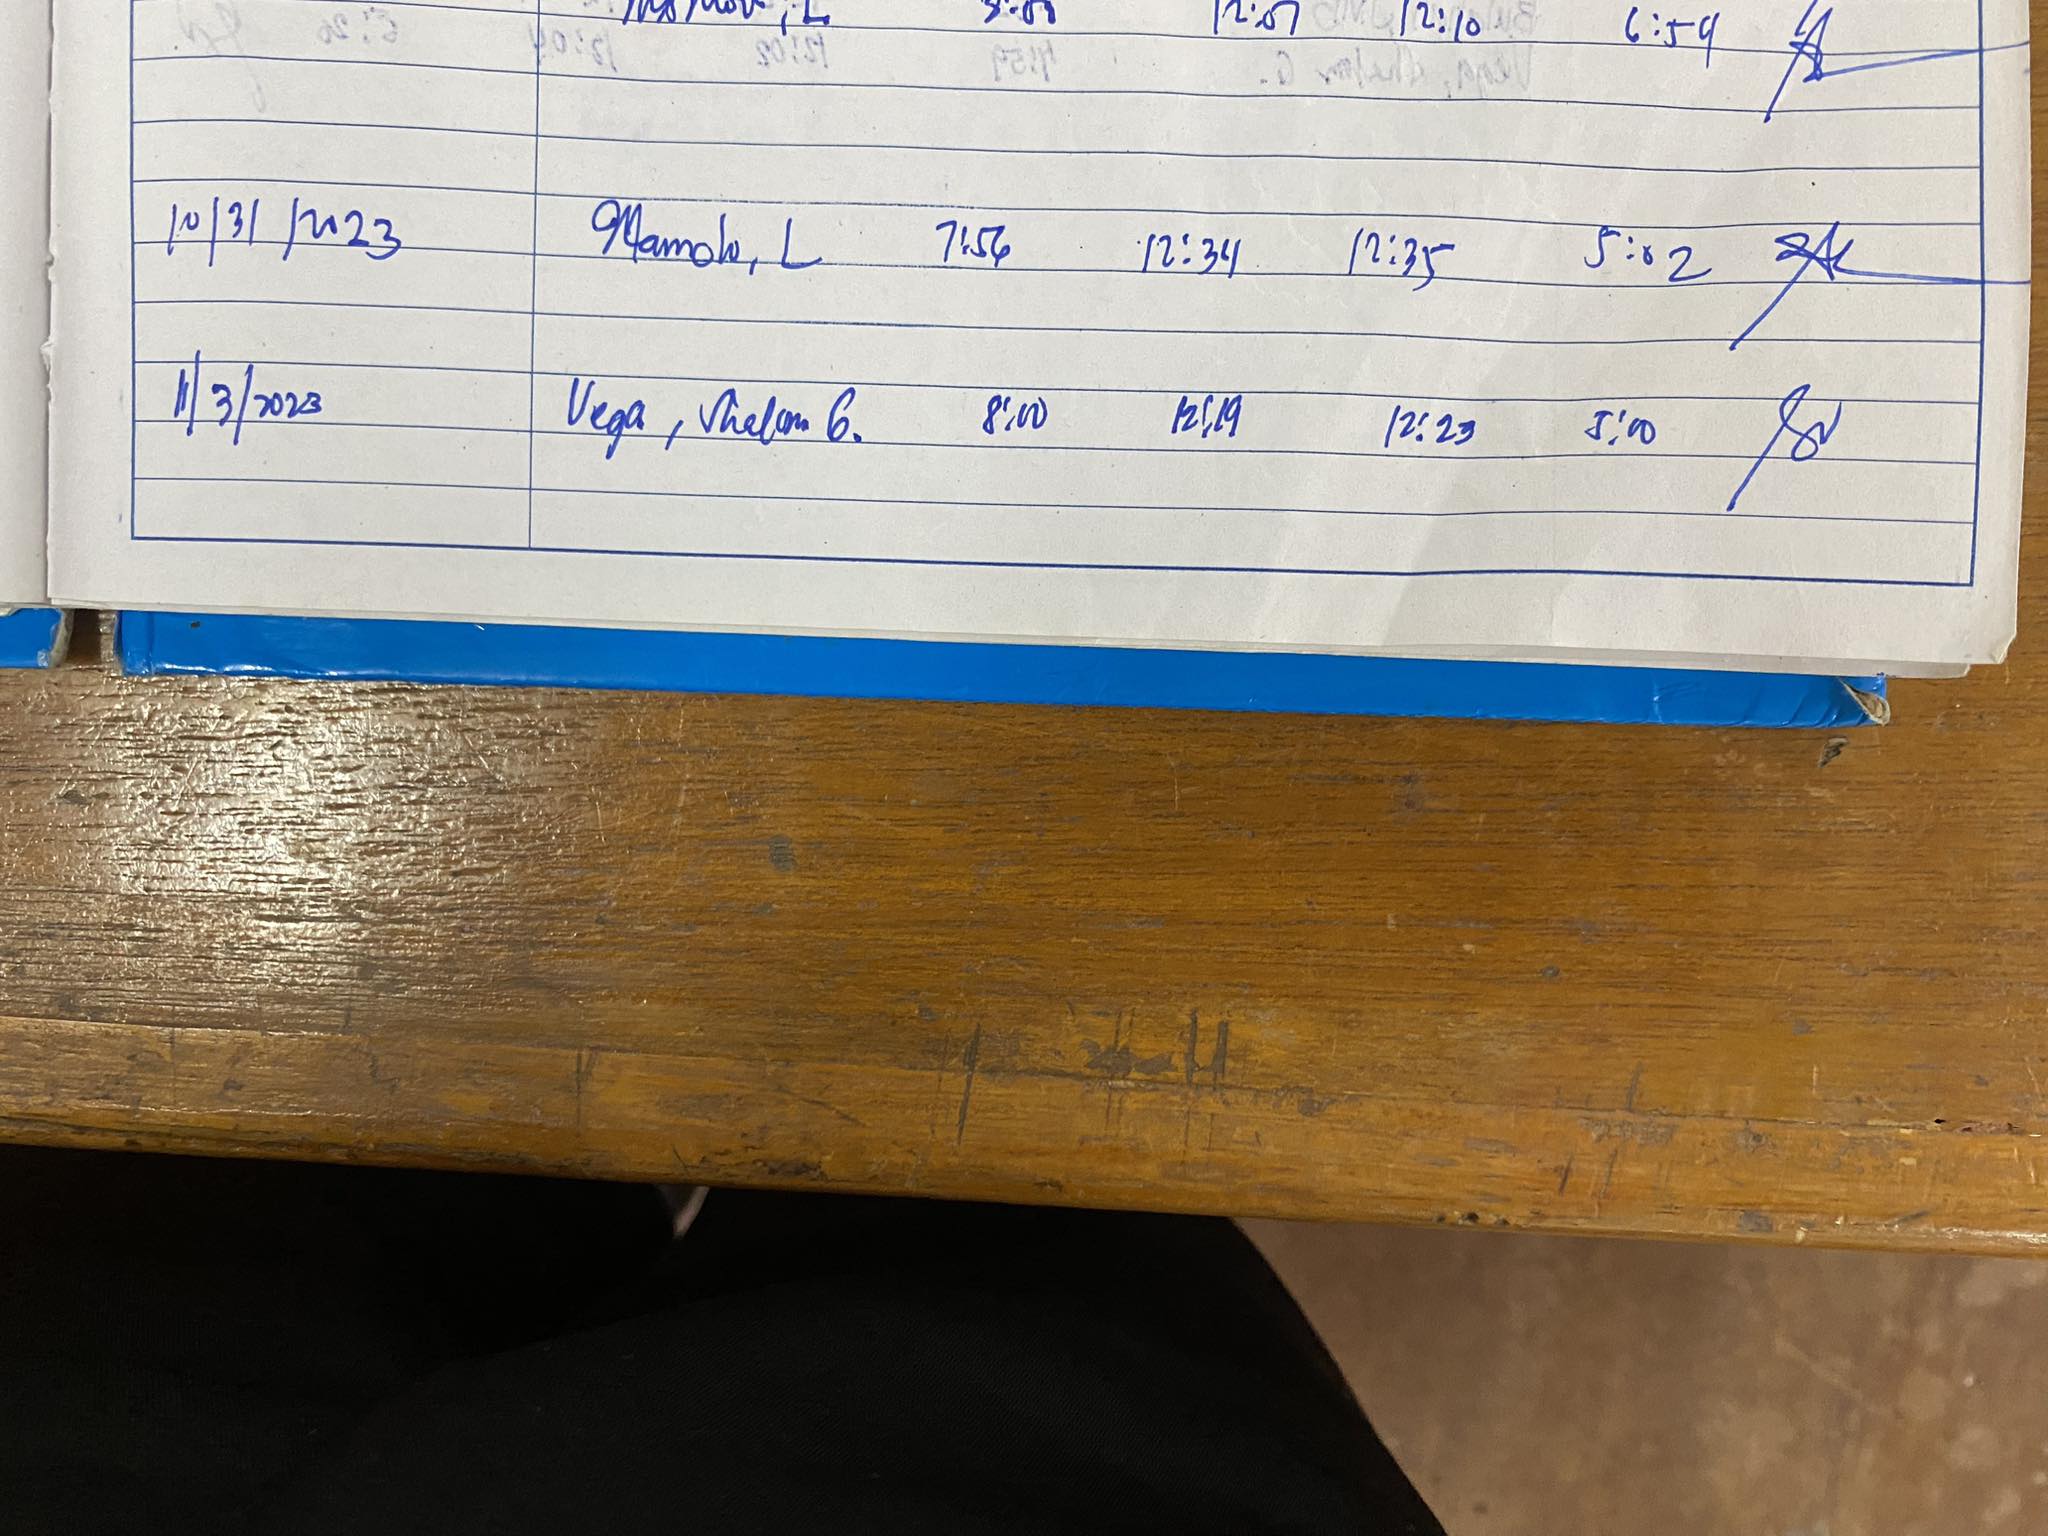 L. 12:07 12:10 6:59
10/31/2023 Mamolo, L 7:56 12:34 12:35 5:02
11/3/2023 Vega, Shalom G. 8:00 12:19 12:23 5:00